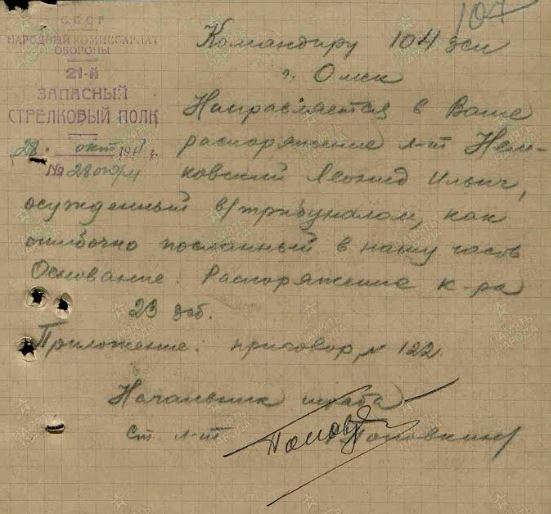 104
СССР
НАРОДНЫЙ КОМИССАРИАТ
ОБОРОНЫ
21-й
ЗАПАСНЫЙ
СТРЕЛКОВЫЙ ПОЛК
28. окт 194 г.
№ 28
Командиру 104 зсп
г. Омск
Направляется в Ваше
распоряжение л-т
Леонид Ильич,
осужденный в/трибуналом, как
ошибочно посланный в нашу часть
Основание: Распоряжение к-ра
23 зсб.
Приложение: приговор № 122
Начальник штаба
Ст. л-т